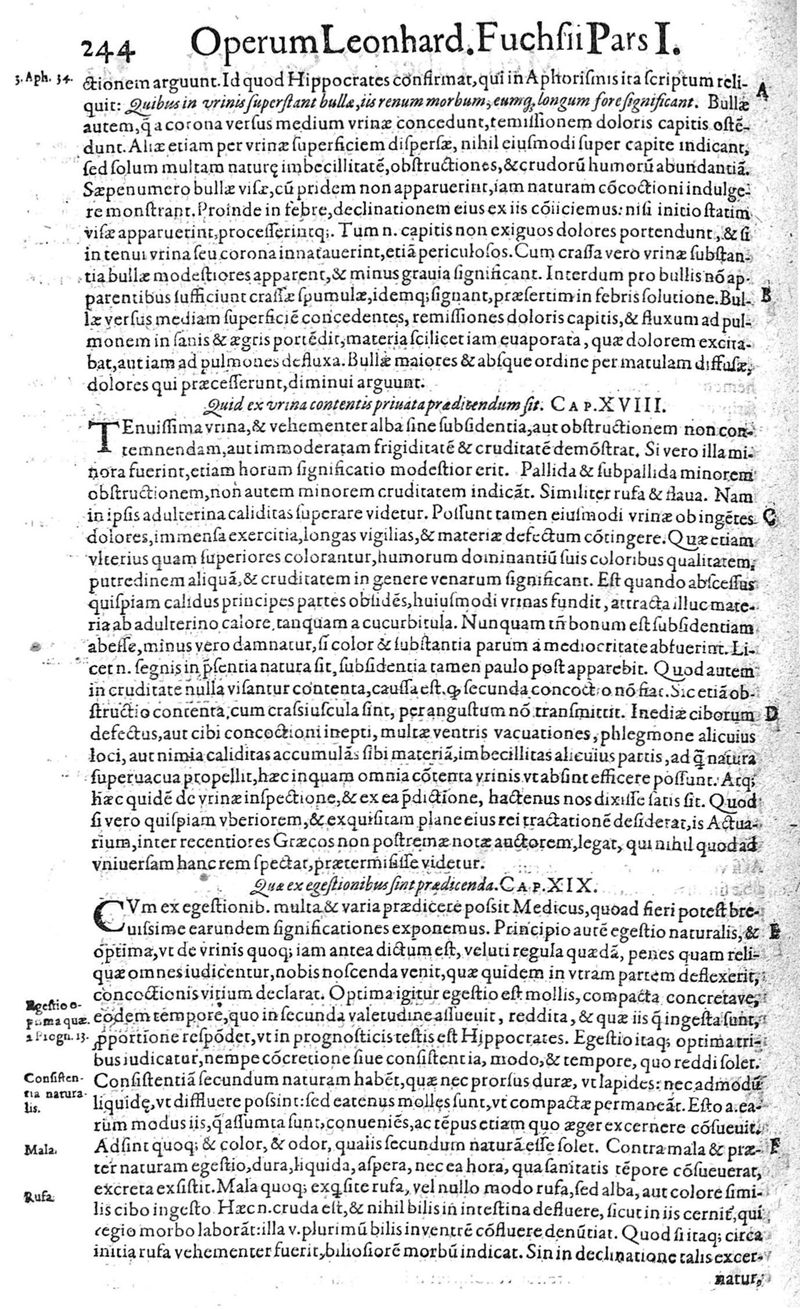 244 Operum Leonhard. Fuchſii Pars I.
3. Aph. 34. ctionem arguunt. Id quod Hippocrates confirmat, qui in Aphoriſmis ita ſcriptum reli- A
quit: Quibus in vrinis ſuperſtant bullæ, iis renum morbum, eumq; longum fore ſignificant. Bullæ
autem, q̃ a corona verſus medium vrinæ concedunt, remiſſionem doloris capitis oſtē-
dunt. Aliæ etiam per vrinæ ſuperficiem diſperſæ, nihil eiuſmodi ſuper capite indicant,
ſed ſolum multam naturę imbecillitatē, obſtructiones, & crudorũ humorũ abundantiã.
Sæpenumero bullæ viſæ, cũ pridem non apparuerint, iam naturam cõcoctioni indulge-
re monſtrant. Proinde in febre, declinationem eius ex iis cõiiciemus: niſi initio ſtatim
viſæ apparuerint, proceſſerintq;. Tum n. capitis non exiguos dolores portendunt, & ſi
in tenui vrina ſeu corona innatauerint, etiã periculoſos. Cum craſſa vero vrinæ ſubſtan-
tia bullæ modeſtiores apparent, & minus grauia ſignificant. Interdum pro bullis nõ ap-
parentibus ſufficiunt craſſæ ſpumulæ, idemq; ſignant, præſertim in febris ſolutione. Bul- B
læ verſus mediam ſuperficiē concedentes, remiſſiones doloris capitis, & fluxum ad pul-
monem in ſanis & ægris portēdit, materia ſcilicet iam euaporata, quæ dolorem excita-
bat, aut iam ad pulmones defluxa. Bullæ maiores & abſque ordine per matulam diffuſæ,
dolores qui præceſſerunt, diminui arguunt.
Quid ex vrina contentis priuata præditendum ſit. CAP. XVIII.
TEnuiſſima vrina, & vehementer alba ſine ſubſidentia, aut obſtructionem non con-
temnendam, aut immoderatam frigiditatē & cruditatē demõſtrat. Si vero illa mi-
nora fuerint, etiam horum ſignificatio modeſtior erit. Pallida & ſubpallida minorem
obſtructionem, non autem minorem cruditatem indicãt. Similiter rufa & flaua. Nam
in ipſis adulterina caliditas ſuperare videtur. Poſſunt tamen eiuſmodi vrinæ ob ingētes C
dolores, immenſa exercitia, longas vigilias, & materiæ defectum cõtingere. Quæ etiam
vlterius quam ſuperiores colorantur, humorum dominantiũ ſuis coloribus qualitatem,
putredinem aliquã, & cruditatem in genere venarum ſignificant. Eſt quando abſceſſus
quiſpiam calidus principes partes obſidēs, huiuſmodi vrinas fundit, attracta illuc mate-
ria ab adulterino calore, tanquam a cucurbitula. Nunquam tñ bonum eſt ſubſidentiam
abeſſe, minus vero damnatur, ſi color & ſubſtantia parum a mediocritate abfuerint. Li-
cet n. ſegnis in p̃ſentia natura ſit, ſubſidentia tamen paulo poſt apparebit. Quod autem
in cruditate nulla viſantur contenta, cauſſa eſt, ꝙ ſecunda concoctio nõ fiat. Sic etiã ob-
ſtructio contenta, cum craſſiuſcula ſint, per anguſtum nõ tranſmittit. Inediæ ciborum D
defectus, aut cibi concoctioni inepti, multæ ventris vacuationes, phlegmone alicuius
loci, aut nimia caliditas accumulãs ſibi materiã, imbecillitas alicuius partis, ad q̃ natura
ſuperuacua propellit, hæc inquam omnia cõtenta vrinis vt abſint efficere poſſunt. Atq;
hæc quidē de vrinæ inſpectione, & ex ea p̃dictione, hactenus nos dixiſſe ſatis ſit. Quod
ſi vero quiſpiam vberiorem, & exquiſitam plane eius rei tractationē deſiderat, is Actua-
rium, inter recentiores Græcos non poſtremæ notæ auctorem, legat, qui nihil quod ad
vniuerſam hanc rem ſpectat, prætermiſiſſe videtur.
Quæ ex egeſtionibus ſint prædicenda. CAP. XIX.
CVm ex egeſtionib. multa & varia prædicere poſſit Medicus, quoad fieri poteſt bre-
uiſſime earundem ſignificationes exponemus. Principio autē egeſtio naturalis, & E
optima, vt de vrinis quoq; iam antea dictum eſt, veluti regula quædã, penes quam reli-
quæ omnes iudicentur, nobis noſcenda venit, quæ quidem in vtram partem deflexerit,
concoctionis vitium declarat. Optima igitur egeſtio eſt mollis, compacta concretave,
Egeſtio o-
ptima quæ. eodem tempore, quo in ſecunda valetudine aſſueuit, reddita, & quæ iis q̃ ingeſta ſunt,
2 Progn. 13. ꝓportione reſpõdet, vt in prognoſticis teſtis eſt Hippocrates. Egeſtio itaq; optima tri-
bus iudicatur, nempe cõcretione ſiue conſiſtentia, modo, & tempore, quo reddi ſolet.
Conſiſten-
tia natura-
lis. Conſiſtentiã ſecundum naturam habēt, quæ nec prorſus duræ, vt lapides: nec admodũ
liquidę, vt diffluere poſſint: ſed eatenus molles ſunt, vt compactæ permaneãt. Eſto a. ea-
rũm modus iis, q̃ aſſumta ſunt, conueniēs, ac tēpus etiam quo æger excernere cõſueuit.
Mala. Adſint quoq; & color, & odor, qualis ſecundum naturã eſſe ſolet. Contra mala & præ- F
ter naturam egeſtio, dura, liquida, aſpera, nec ea hora, qua ſanitatis tēpore cõſueuerat,
Rufa. excreta exſiſtit. Mala quoq; exq̃ſite rufa, vel nullo modo rufa, ſed alba, aut colore ſimi-
lis cibo ingeſto. Hæc n. cruda eſt, & nihil bilis in inteſtina defluere, ſicut in iis cernit᷑, qui
regio morbo laborãt: illa v. plurimũ bilis in ventrē cõfluere denũtiat. Quod ſi itaq; circa
initia rufa vehementer fuerit, bilioſiorē morbũ indicat. Sin in declinatione talis excer-
natur,